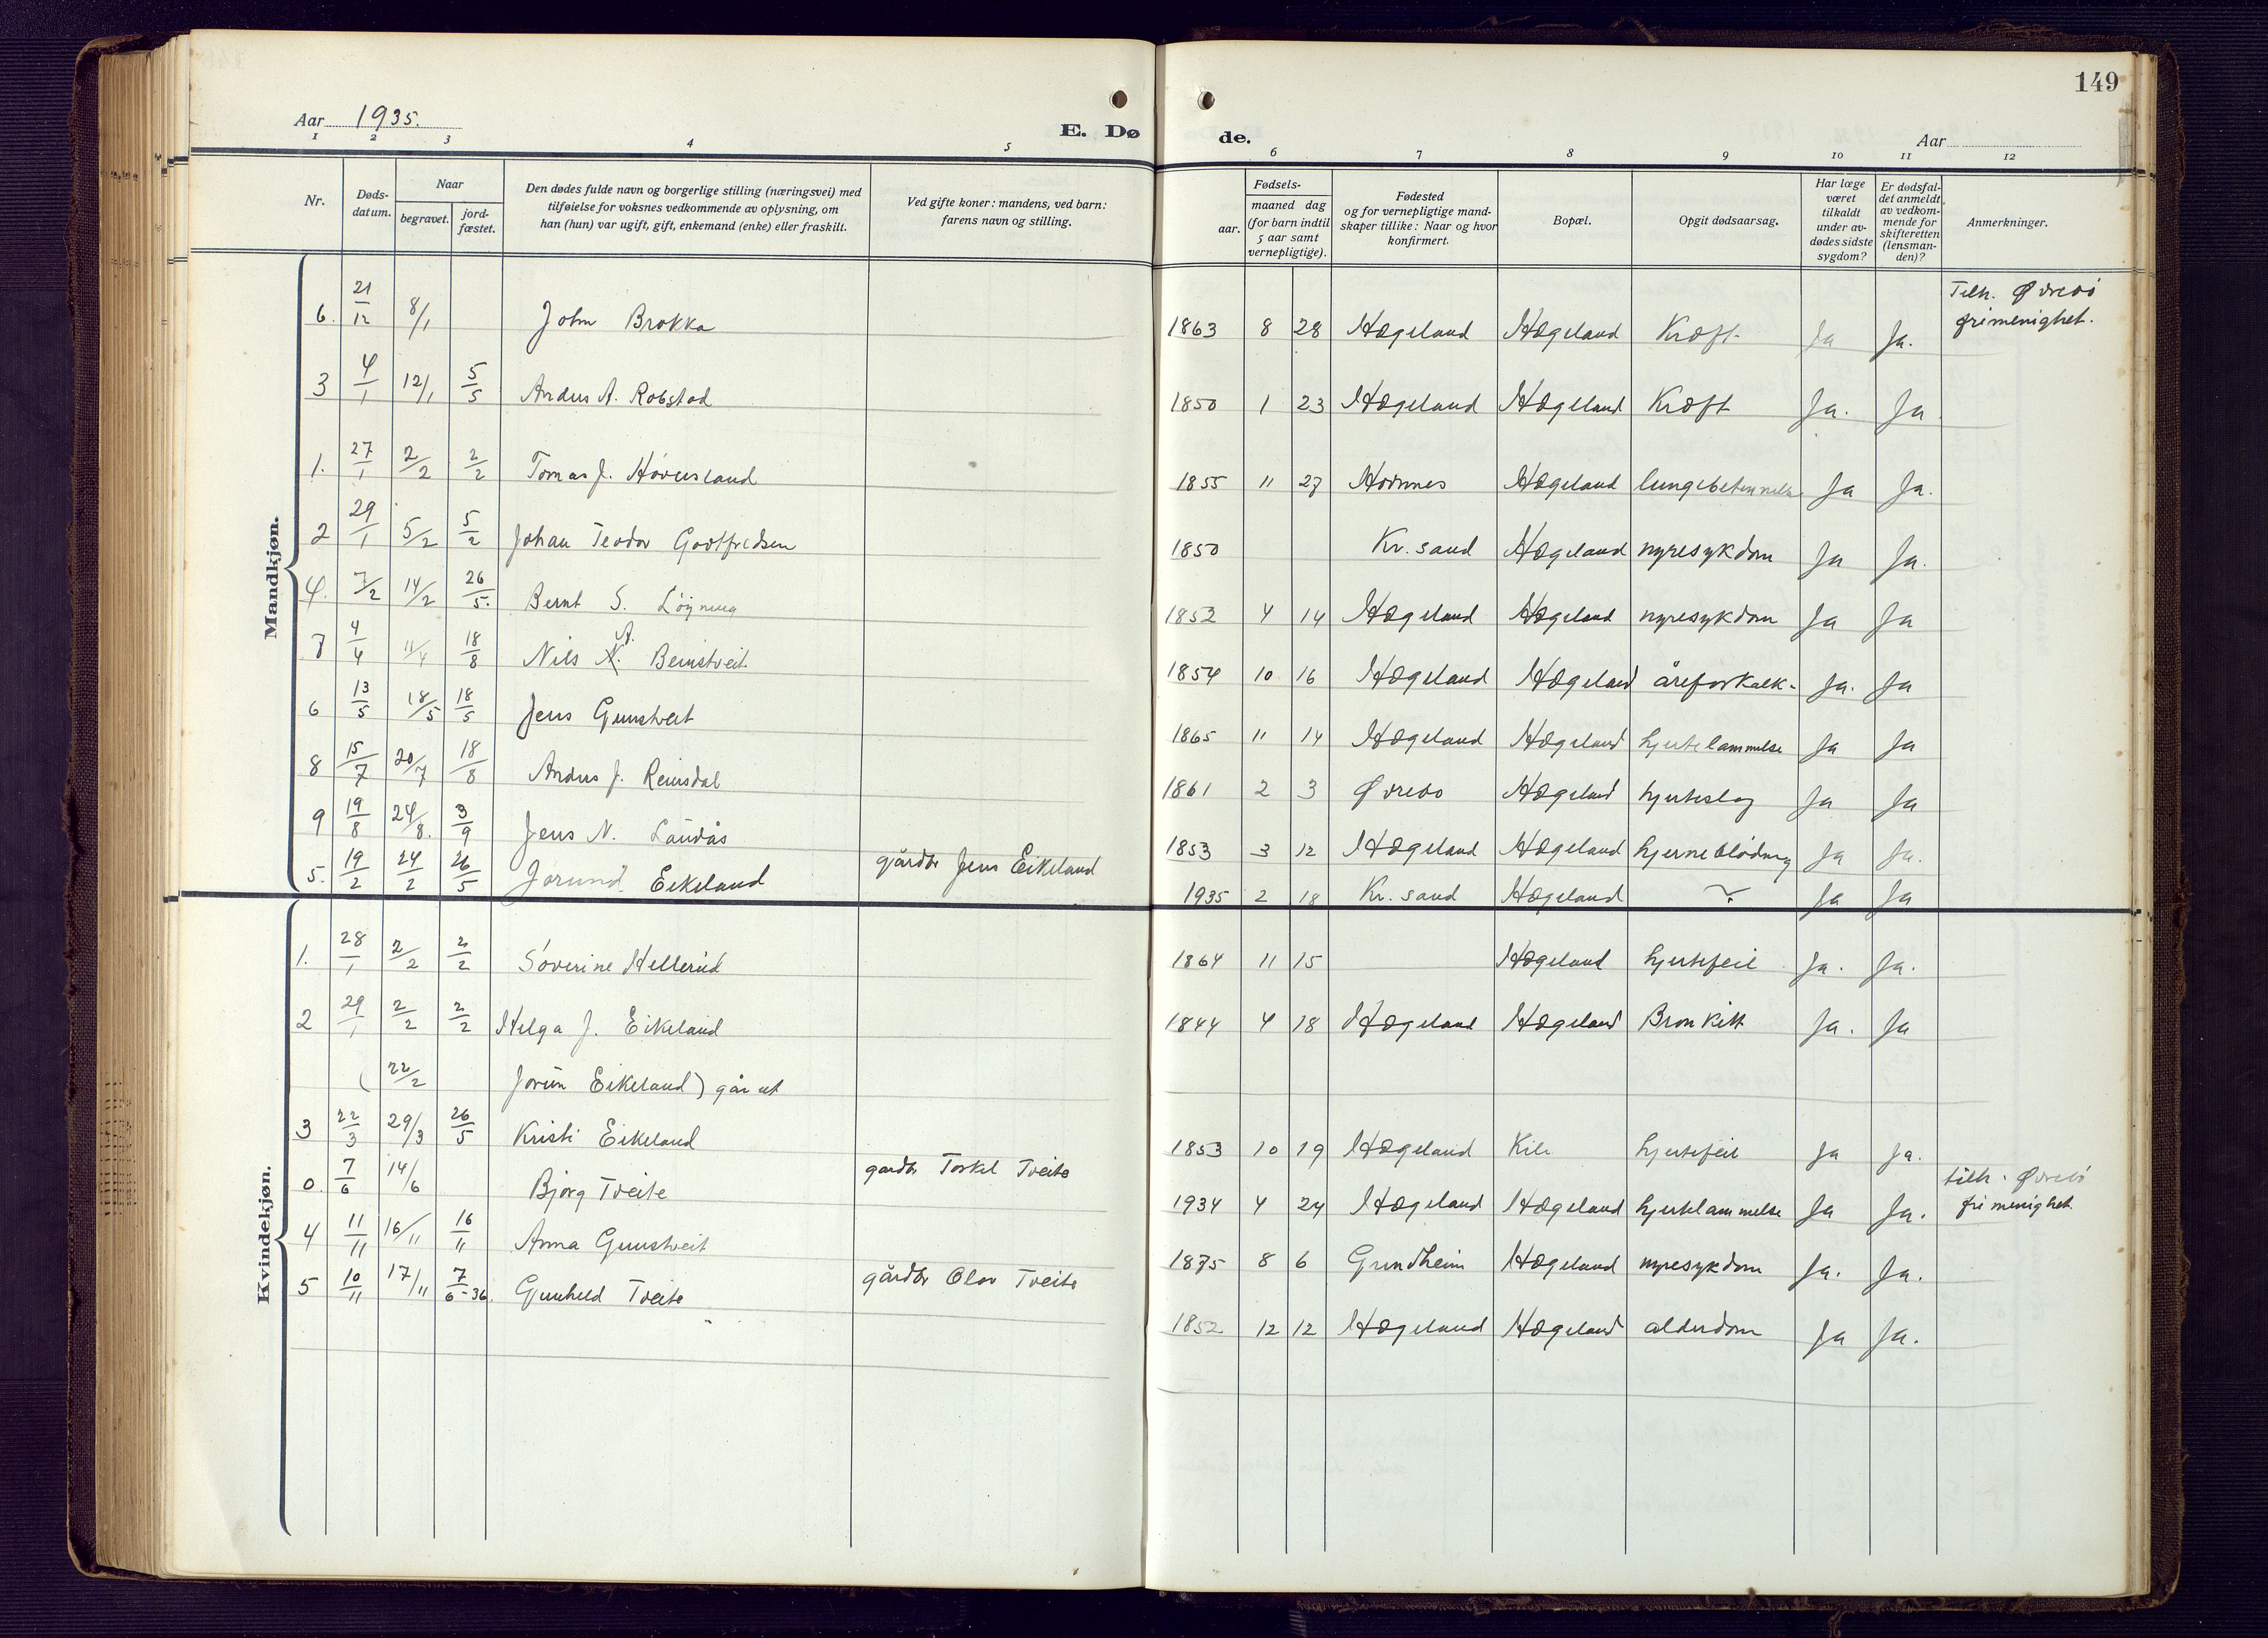 149
Aar 1935.
E. Dø
de.
Aar
1 2 3 4 5 6 7 8 9 10 11 12
Nr.
Døds-
datum.
Naar
begravet.
jord-
fæstet.
Den dødes fulde navn og borgerlige stilling (næringsvei) med
tilføielse for voksnes vedkommende av oplysning, om
han (hun) var ugift, gift, enkemand (enke) eller fraskilt.
Ved gifte koner: mandens, ved barn:
farens navn og stilling.
Fødsels-
aar.
maaned dag
(for barn indtil
5 aar samt
vernepligtige).
Fødested
og for vernepligtige mand-
skaper tillike: Naar og hvor
konfirmert.
Bopæl.
Opgit dødsaarsag.
Har læge
været
tilkaldt
under av-
dødes sidste
sygdom?
Er dødsfal-
det anmeldt
av vedkom-
mende for
skifteretten
(lensman-
den)?
Anmerkninger.
Mandkjøn.
6. 21/12 8/1 John Brokka 1863 8 28 Hægeland Hægeland Kræft Ja Ja. Tilh. Øvrebö
frimenighet.
3 4/1 12/1 5/5 Andus A. Robstad 1850 1 23 Hægeland Hægeland Kræft Ja. Ja
1. 27/1 2/2 2/2 Tomas J. 1855 11 27 Hornnes Hægeland lungebetennelse Ja Ja.
2 29/1 5/2 5/2 Johan Teodor Gottfredsen 1850 Kr.sand Hægeland nyresykdom Ja Ja.
4. 7/2 14/2 26/5. Bernt S. Löyning 1852 4 14 Hægeland Hægeland nyresykdom Ja Ja
7 4/4 11/4 18/8 Nils A. Beinstveit 1854 10 16 Hægeland Hægeland åreforkalk- Ja. Ja
6 13/5 18/5 18/5 Jens Gunstveit 1865 11 14 Hægeland Hægeland hjertelammelse Ja Ja
8 15/7 20/7 18/8 Andus J. Reinsdal 1861 2 3 Øvrebo Hægeland hjerteslag Ja Ja
9 19/8 24/8. 3/9 Jens N. Landås 1853 3 12 Hægeland Hægeland hjerneblödning Ja Ja.
5. 19/2 24/2 26/5 Jorund Eikeland gårdbr Jens Eikeland 1935 2 18 Kr.sand Hægeland ? Ja Ja
Kvindekjøn.
1. 28/1 2/2 2/2 Söverine Hellerud 1864 11 15 Hægeland hjertefeil Ja. Ja.
2 29/1 2/2 2/2 Helga J. Eikeland 1844 4 18 Hægeland Hægeland Bronkitt Ja. Ja
( 22/2 Jorün Eikeland) går ut
3 22/3 29/3 26/5 Kristi Eikeland 1853 10 19 Hægeland Kile hjertefeil Ja Ja.
0. 7/6 14/6 Björg Tveite gårdbr Torkel Tveite 1934 4 24 Hægeland Hægeland hjertelammelse Ja Ja. tilh. Øvrebö
frimenighet.
4 11/11 16/11 16/11 Anna Gunstveit 1875 8 6 Grindheim Hægeland nyresykdom Ja. Ja.
5 10/11 17/11 7/6-36. Gunhild Tveite gårdbr Olav Tveite 1852 12 12 Hægeland Hægeland alderdom Ja Ja.